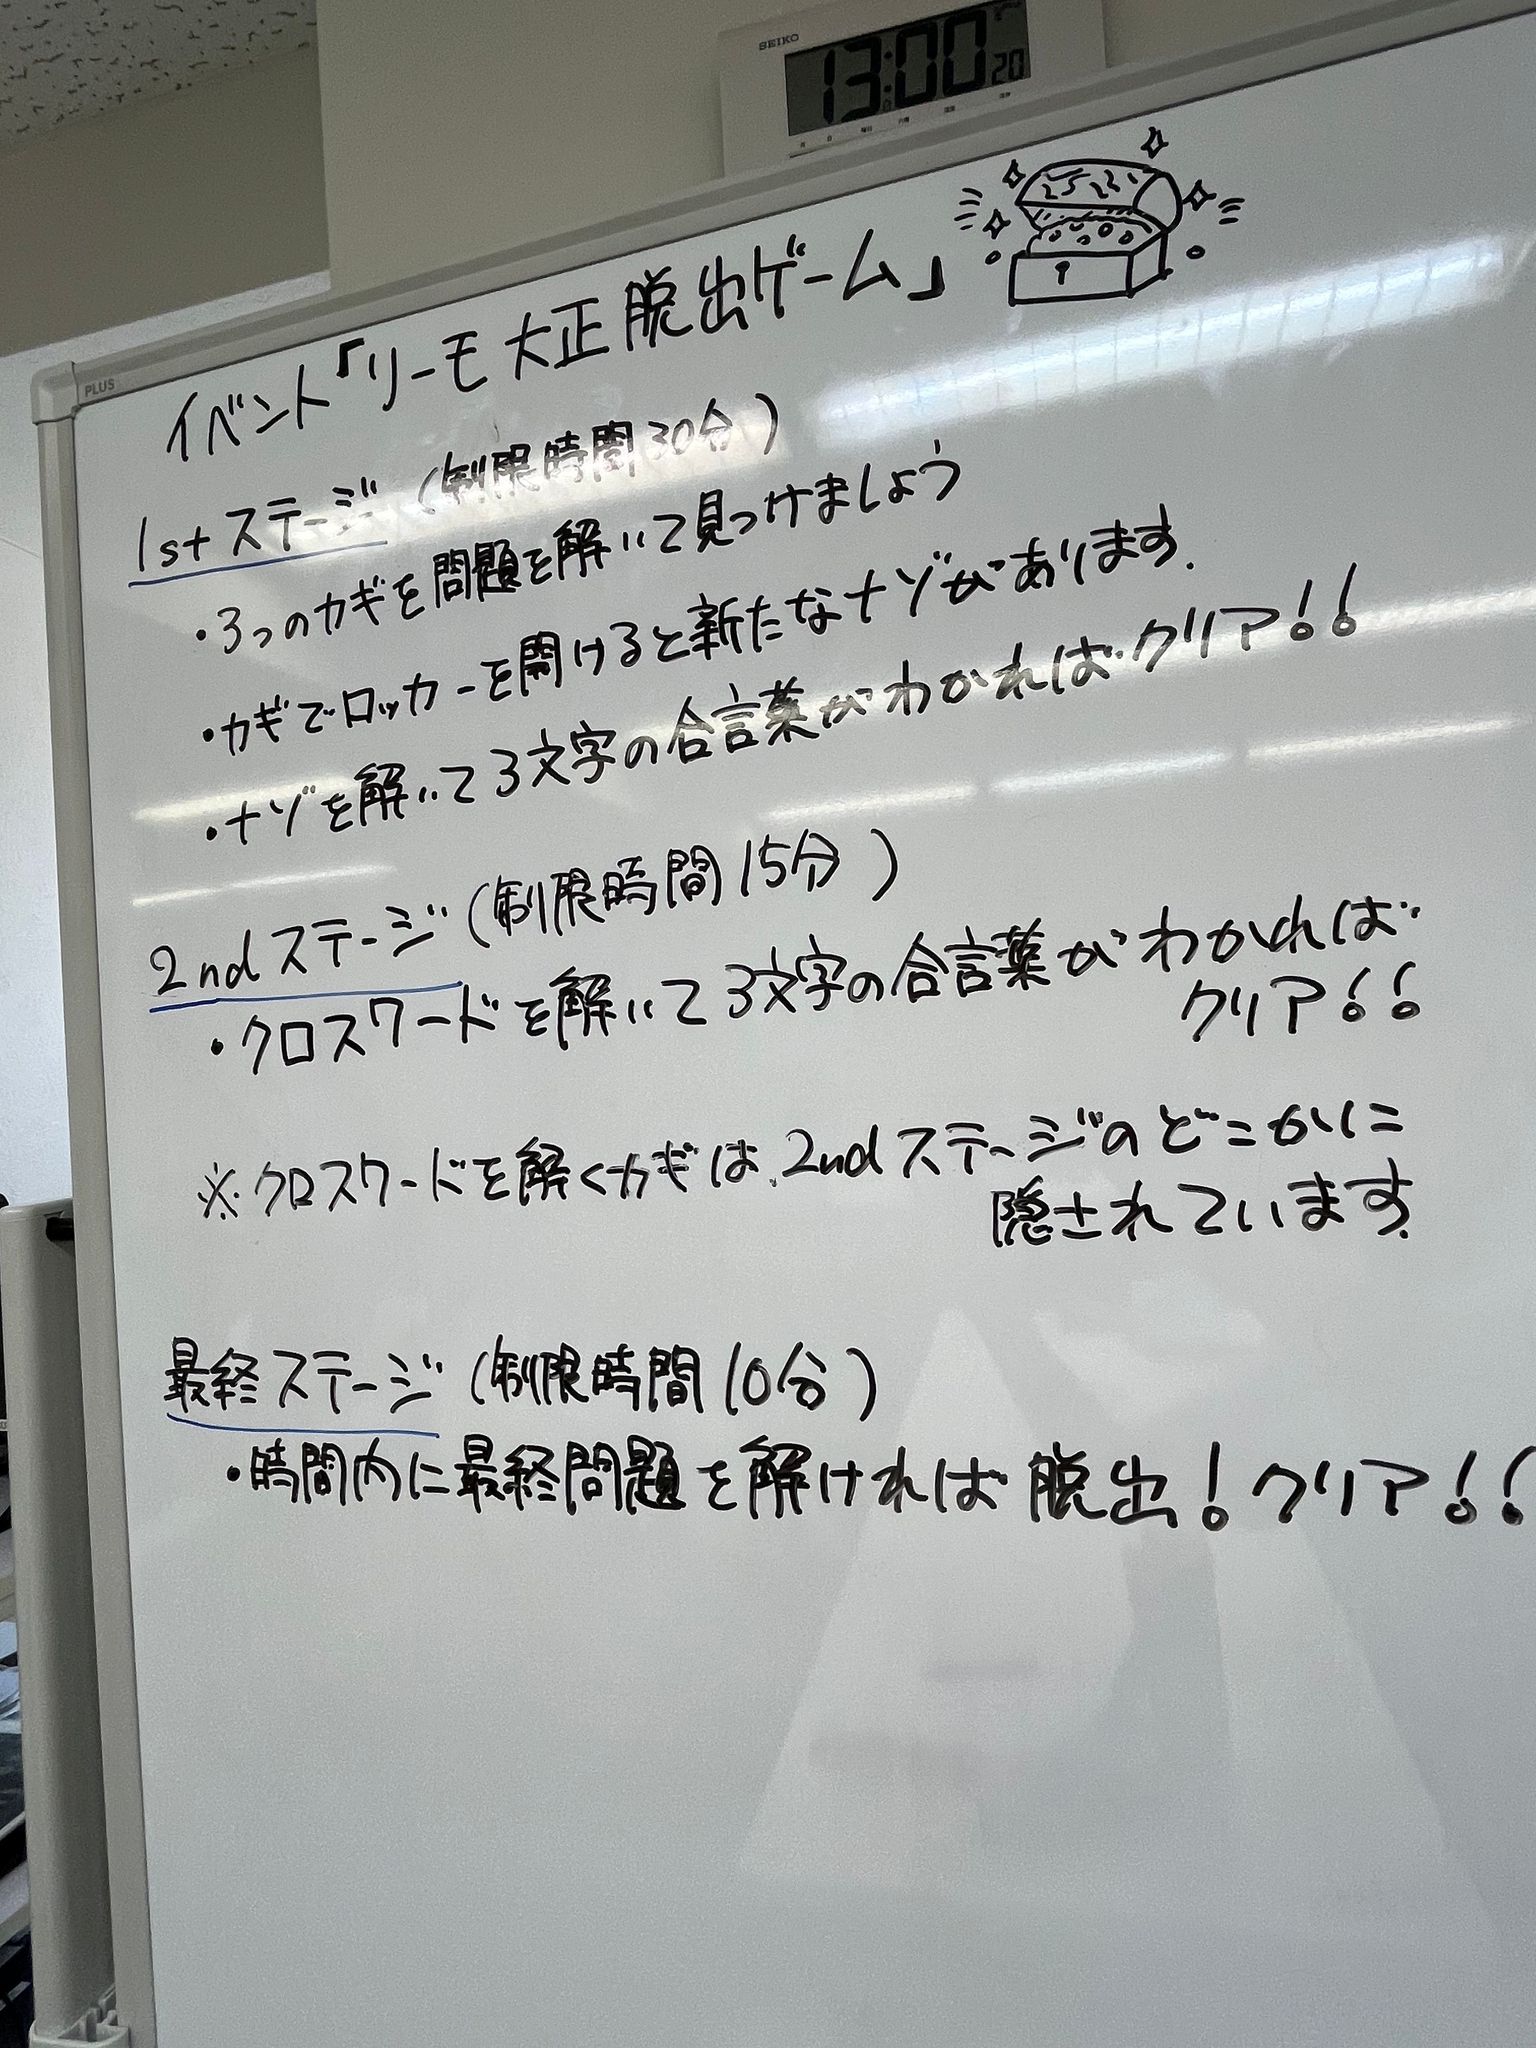 SEIKO
13:00 20
PLUS
イベント「リーモ大正脱出ゲーム」
1stステージ (制限時間30分)
・3つのカギを問題を解いて見つけましょう
・カギでロッカーを開けると新たなナゾがあります.
・ナゾを解いて3文字の合言葉がわかればクリア!!
2ndステージ (制限時間15分)
・クロスワードを解いて3文字の合言葉がわかれば
クリア!!
※クロスワードを解くカギは、2ndステージのどこかに
隠されています.
最終ステージ (制限時間10分)
・時間内に最終問題を解ければ脱出!クリア!!